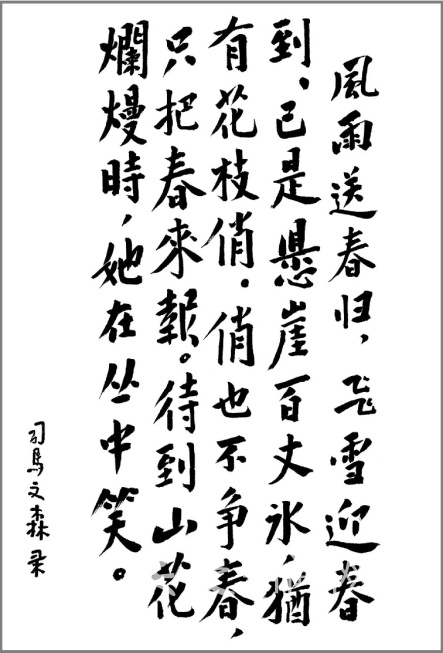 風雨送春归，飞雪迎春
到，已是懸崖百丈冰，猶
有花枝俏。俏也不争春，
只把春來報。待到山花
爛熳時，她在丛中笑。
司馬文森录